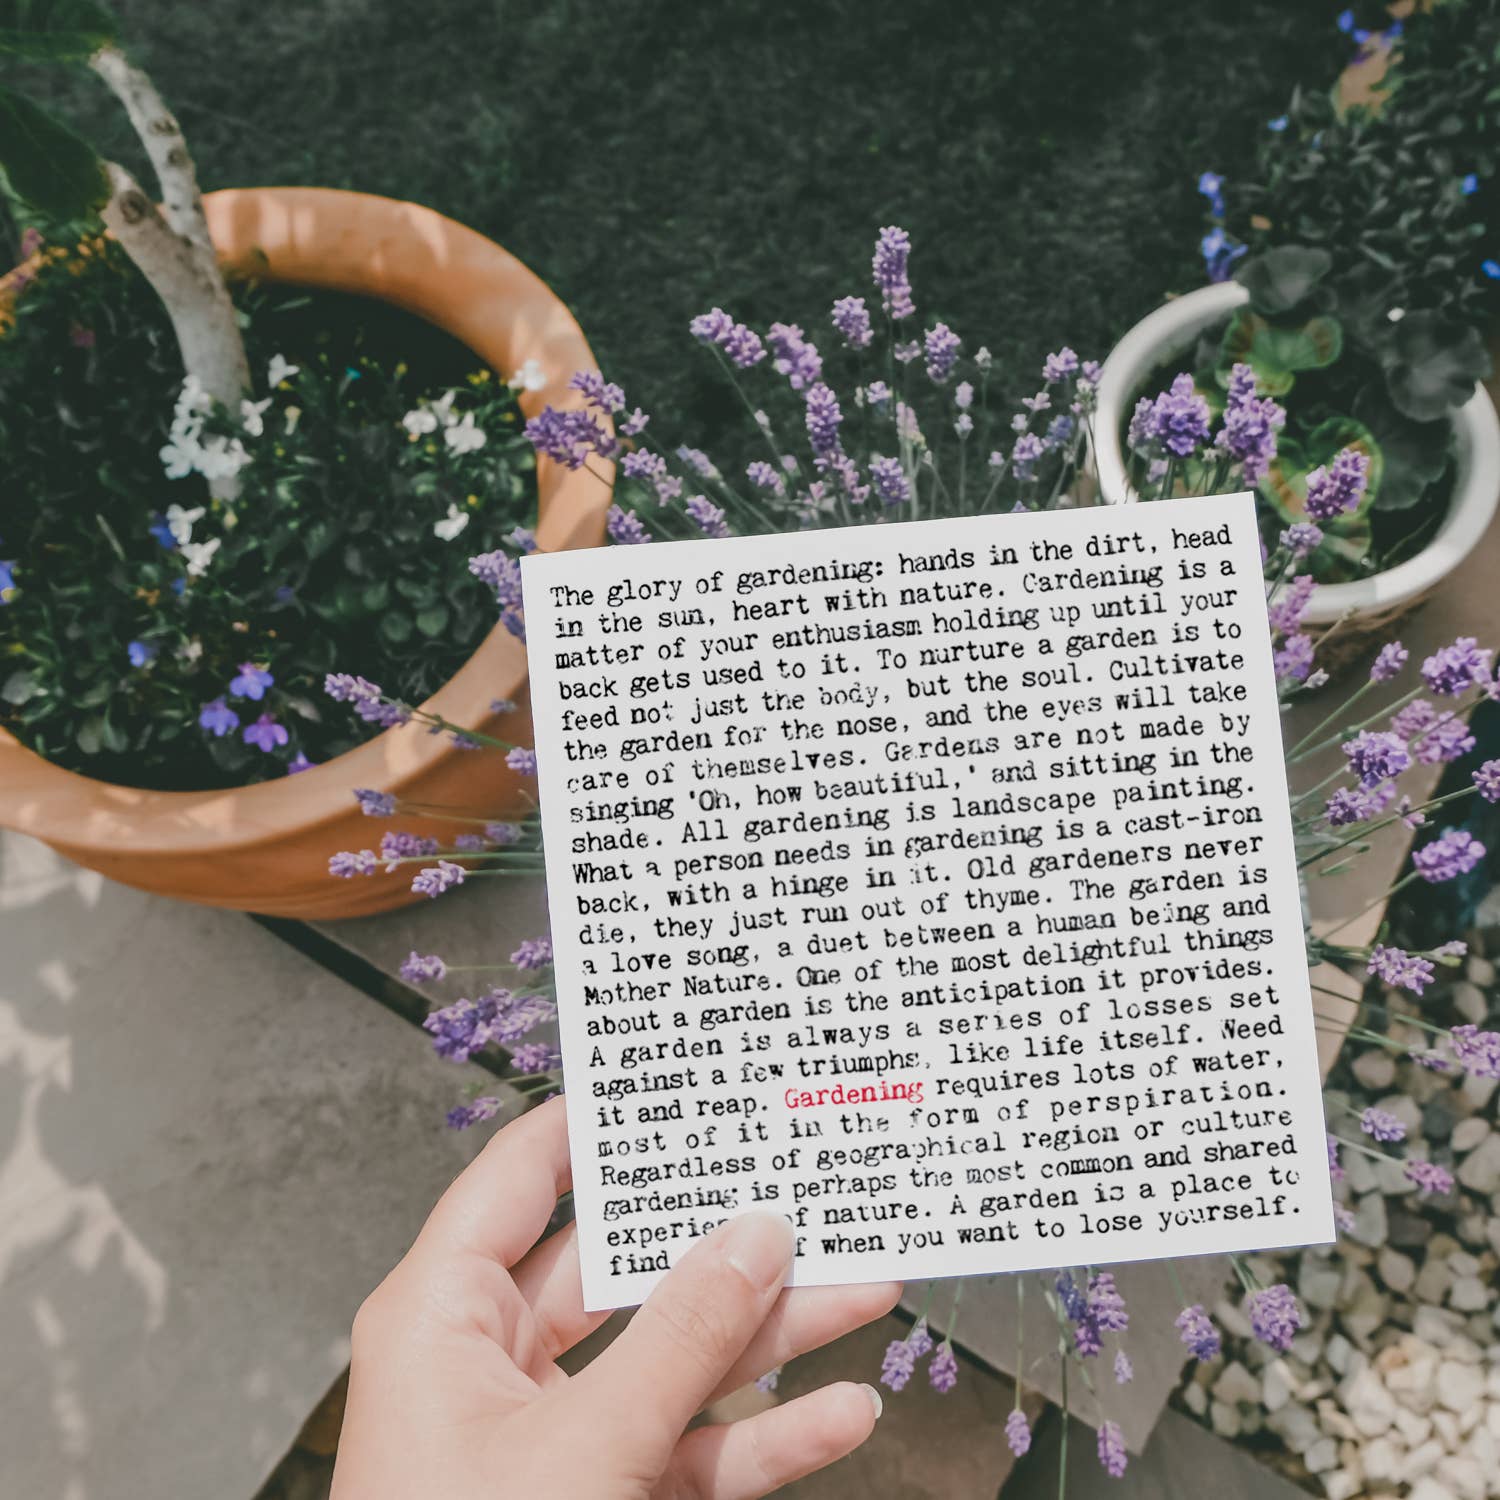 The glory of gardening: hands in the dirt, head
in the sun, heart with nature. Gardening is a
matter of your enthusiasm holding up until your
back gets used to it. To nurture a garden is to
feed not just the body, but the soul. Cultivate
the garden for the nose, and the eyes will take
care of themselves. Gardens are not made by
singing 'Oh, how beautiful,' and sitting in the
shade. All gardening is landscape painting.
What a person needs in gardening is a cast-iron
back, with a hinge in it. Old gardeners never
die, they just run out of thyme. The garden is
a love song, a duet between a human being and
Mother Nature. One of the most delightful things
about a garden is the anticipation it provides.
A garden is always a series of losses set
against a few triumphs, like life itself. Weed
it and reap. Gardening requires lots of water,
most of it in the form of perspiration.
Regardless of geographical region or culture
gardening is perhaps the most common and shared
of nature. A garden is a place to
find when you want to lose yourself.